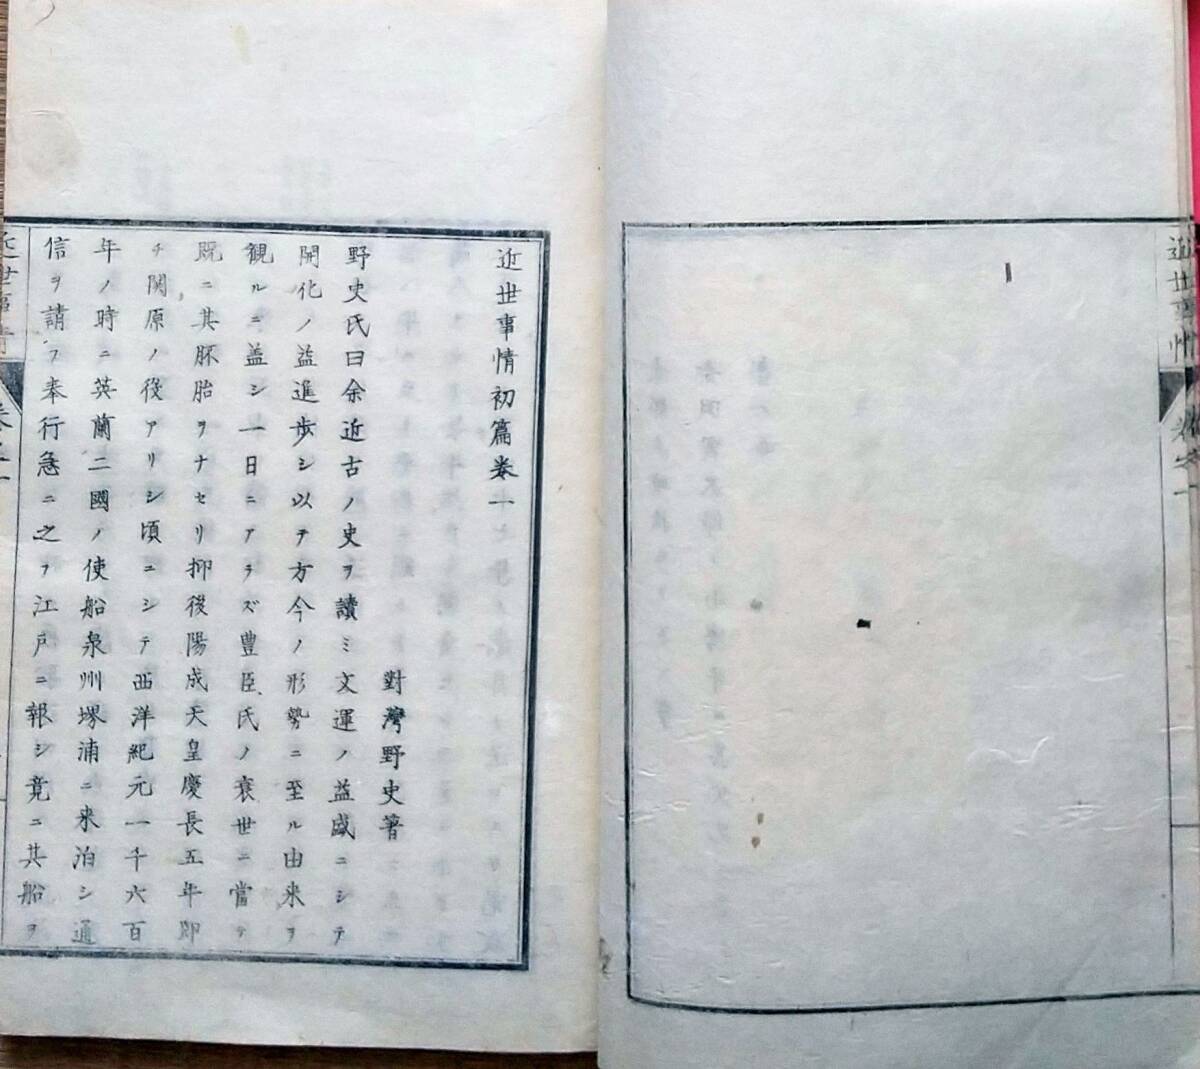 近世事情
卷之一
近世事情初篇卷一
對灣野史著
野史氏曰余近古ノ史ヲ讀ミ文運ノ益盛ニシテ
開化ノ益進歩シ以テ方今ノ形勢ニ至ル由来ヲ
観ルニ盖シ一日ニアラズ豊臣氏ノ衰世ニ當テ
既ニ其胚胎ヲナセリ抑後陽成天皇慶長五年即
チ関原ノ役アリシ頃ニシテ西洋紀元一千六百
年ノ時ニ英蘭二國ノ使船泉州堺浦ニ来泊シ通
信ヲ請フ奉行急ニ之ヲ江戸ニ報シ竟ニ其船ヲ
近世事情
卷之一